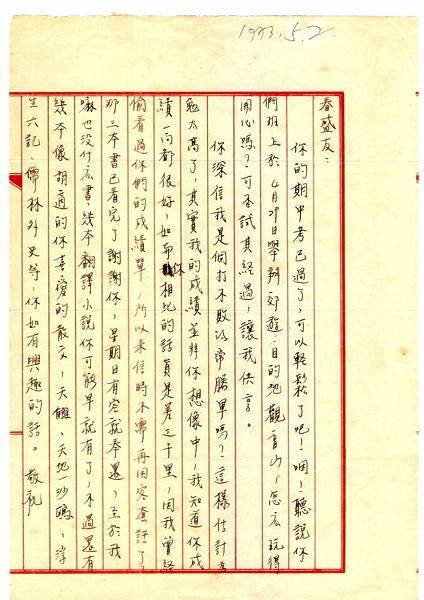 1973.5.2.
春盛友：
你的期中考已過了，可以輕鬆了吧！嗯！聽說你
們班上於4月29日舉辦郊遊，目的地觀音山，怎麼玩得
開心嗎？可否試其經過，讓我供享。
你深信我是個打不敗的常勝軍嗎？這樣估計
勉太高了，其實我的成績並非你想像中，我知道你成
績一向都很好，如和你相比的話真是差之千里，因我曾經
偷看過你們的成績單，所以來信時不需再用客套話了
那三本書已看完了謝謝你，星期日有空就奉還，至於我
嘛也没什麼書，幾本翻譯小說你可能早就有了，不過還有
幾本像胡適的你喜愛的散文，天龍、天地一沙鷗，浮
生六記、儒林外史等，你如有興趣的話。敬祝